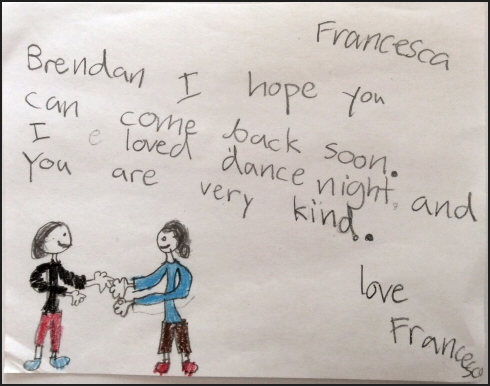 Francesca
Brendan I hope you
can come back soon.
I loved dance night and
You are very kind.
love
Francesca